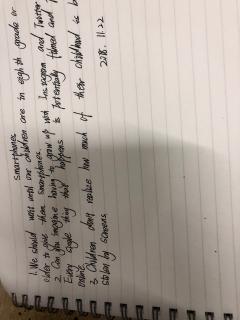 smartphones
1. We should wait until our children are in eighth grade or
older to give them smartphones.
2. Can you imagine having to grow up with Instagram and Twitter
Every single thing that happens is potentially filmed and
online.
3. Children don't realize how much of their childhood is b
stolen by screens
2018. 11. 22